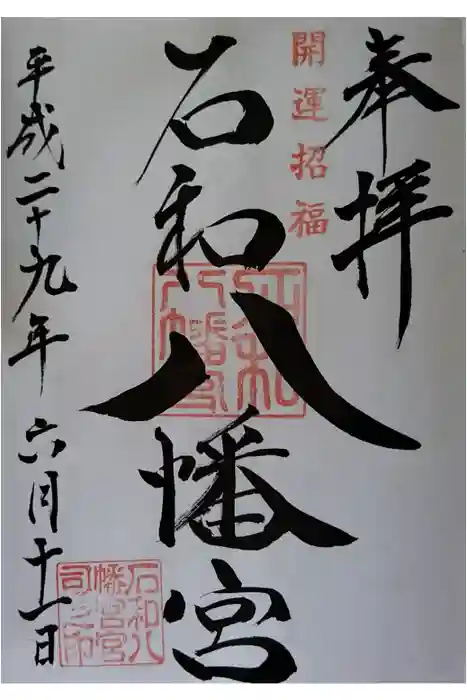 奉拝
開運招福
石和八幡宮
平成二十九年六月十一日
石和八幡宮
石和八幡宮司之印